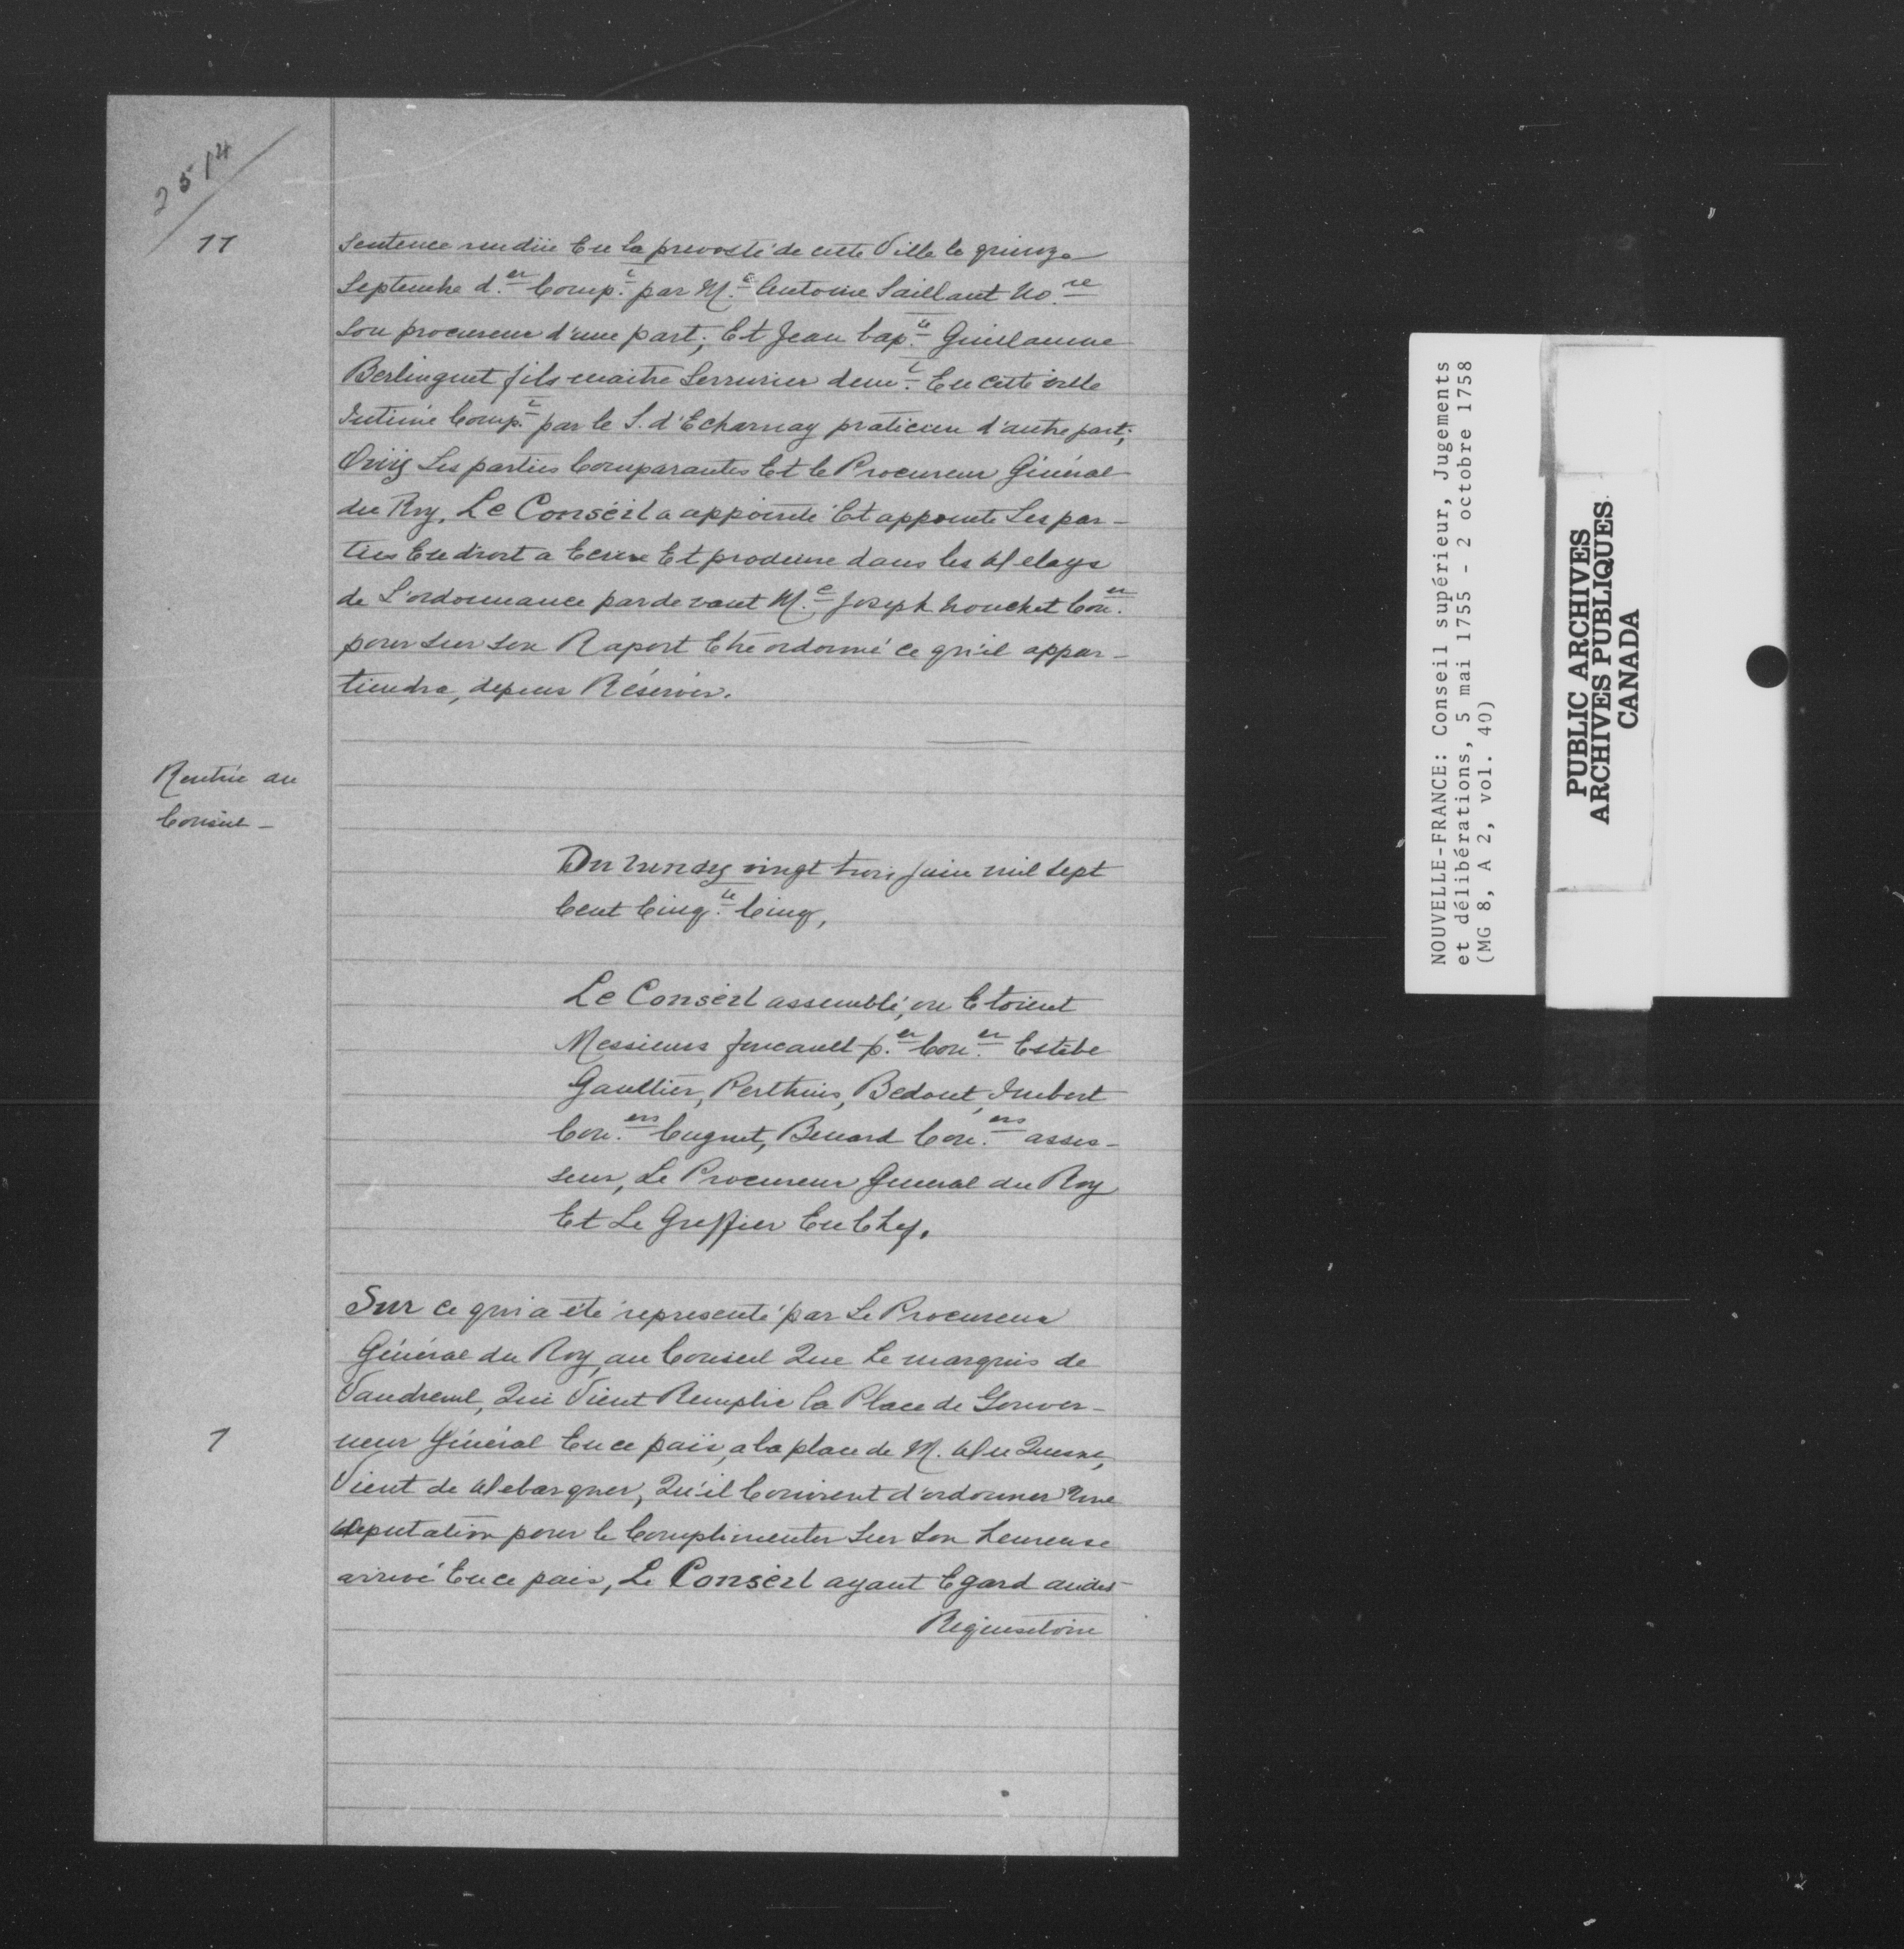 2514
11
Sentence rendüe En la prevosté de cette Ville le quinze
Septembre d.er Comp.t par M.e Antoine Saillant No.re
Son procureur d'une part; Et Jean bap.te Guillaume
Berlinguet fils maitre Serrurier dem.t En cette ville
Intimé Comp.t par le S. d'Echarnay praticien d'autre part;
Oüis Les parties Comparantes Et le Procureur Général
du Roy, Le Conseil a appointé Et appointe Les par-
ties En droit a Ecrire Et produire dans les delays
de L'ordonnance pardevant M.e Joseph nouchet Con.er
pour Sur Son Raport Etre ordonné ce qu'il appar-
tiendra, depens Réservés.
Rentrée au
Conseil -
Du lundy vingt trois Juin mil Sept
Cent Cinq.te Cinq,
Le Conseil assemblé, ou Etoient
Messieurs foucault p.er Con.er Estèbe
Gaultier, Perthuis, Bedout, Imbert
Con.ers Cugnet, Benard Con.ers asses-
seur, Le Procureur General du Roy
Et Le Greffier En Chef.
Sur ce qui a été representé par Le Procureur
Général du Roy, au Conseil Que Le marquis de
Vaudreuil, Qui Vient Remplir la Place de Gouver-
1
neur Général En ce païs, a la place de M. du Quesne,
Vient de debarquer, Qu'il Convient d'ordonner Une
deputation pour le Complimenter Sur Son heureuse
arrivé En ce païs, Le Conseil ayant Egard audit
Requisitoire
NOUVELLE-FRANCE: Conseil supérieur, Jugements
et délibérations, 5 mai 1755 - 2 octobre 1758
(MG 8, A 2, vol. 40)
PUBLIC ARCHIVES
ARCHIVES PUBLIQUES
CANADA